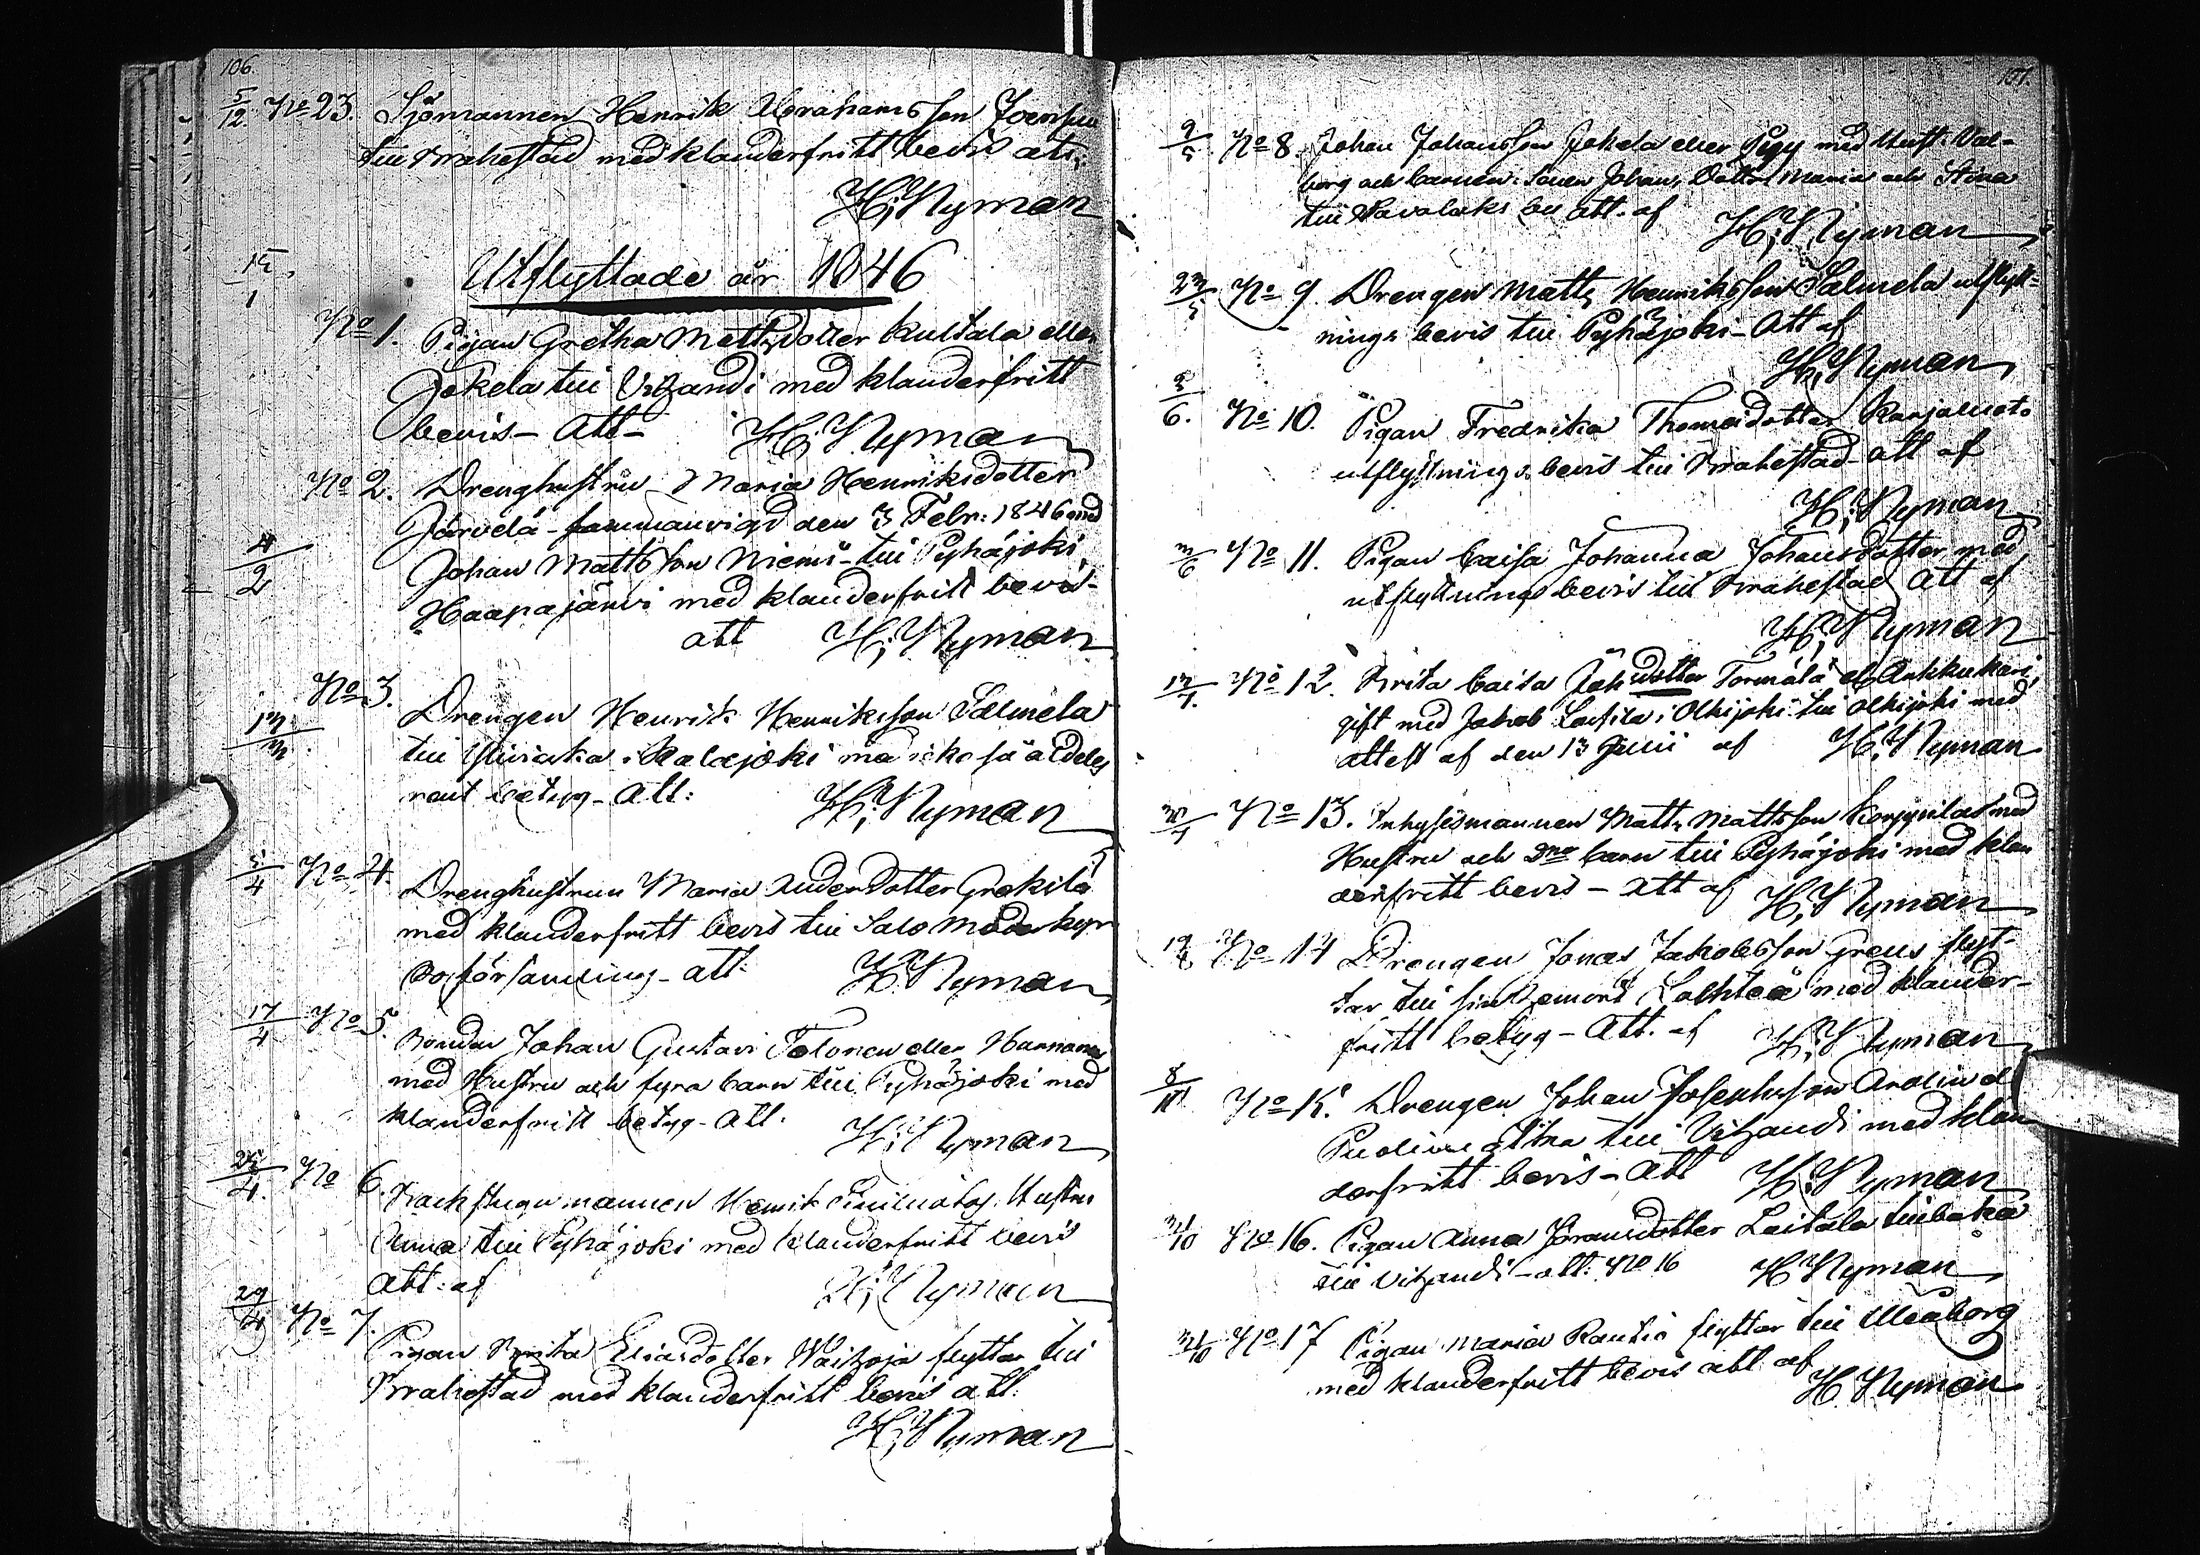 106.
5/12. No 23. Sjömannen Henrik Abrahamsson Joensuu
till Brahestad med klanderfritt bevis att:
H; Nyman
Utflyttade år 1846
15/1
No 1. Pigan Gretha Mattsdotter Kultala eller
Jokela till Vihandi med klanderfritt
bevis - Att - H; Nyman
No 2. Drenghustru Maria Henriksdotter
Järvelä - sammanvigd den 3 Febr: 1846 med
4/2 Johan Mattsson Niemi - till Pyhäjoki
Haapajärvi med klanderfritt bevis -
att H; Nyman
No 3.
Drengen Henrik Henriksson Salmela
till Ylivieska i Kalajoki med icke så aldeles
rent betyg - Att: H; Nyman
5/4 No 4.
Drenghustrun Maria Andersdotter Grekilä
med klanderfritt bevis till Salo Moderkyr
koförsamling - att: H; Nyman
17/4 No 5.
Bonden Johan Gustav Tolonen eller Hannanen
med Hustru och fyra barn till Pyhäjoki med
klanderfritt betyg - Att: H; Nyman
No 6. Backstugumannen Henrik Hustru
Anna till Pyhäjoki med klanderfritt bevis
Att: af H; Nyman
29/4 No 7.
Pigan Brita Eliasdotter Waihoja flyttar till
Brahestad med klanderfritt bevis att:
H; Nyman
107.
9/5 No 8. Johan Johansson Jokela eller Pigg med Hust: Val-
borg och barnen: Sonen Johan, Dottr: Maria och Stina
till Pavolaks by att. af H; Nyman
23/5 No 9. Drengen Matts Henriksson Salmela utflytt-
nings bevis till Pyhäjoki - Att af
H; Nyman
6. No 10. Pigan Fredrika Thomasdotter Karjaluoto
utflyttnings bevis till Brahestad - att af
H; Nyman
No 11. Pigan Caisa Johanna Johansdotter med
utflyttnings bevis till Brahestad Att af
H; Nyman
No 12. Brita Caisa Joh:dotter Törmälä el. Ankkuhari
gift med Jakob Lassila i Olkijoki till Olkijoki med
attest af den 13 Junii af H; Nyman
No 13. Inhysesmannen Matts Mattsson Korppilas med
Hustru och 2ne barn till Pyhäjoki med klan
derfritt bevis - att af H; Nyman
No 14 Drengen Jonas Jakobsson Greus flyt-
tar till sin hemort Lochteå med klander-
fritt betyg - Att. af H; Nyman
No 15. Drengen Johan Josephsson Arolin el
till Vihandi med klan
derfritt bevis - Att H; Nyman
31/10 No 16. Pigan Anna Göransdotter Laitala tillbaka
till Vihandi - att: No 16 H Nyman
31/10 No 17 Pigan Maria Rautio flyttar till Uleåborg
med klanderfritt bevis att af
H Nyman